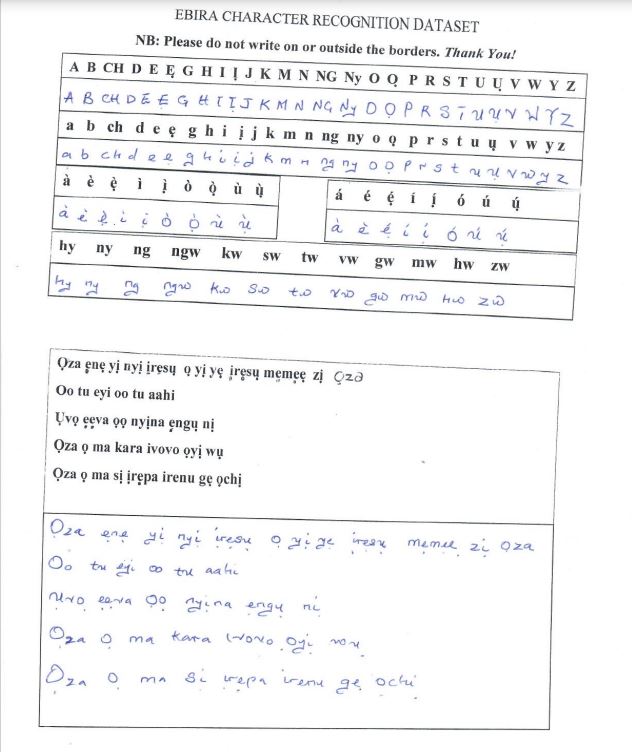 EBIRA CHARACTER RECOGNITION DATASET
NB: Please do not write on or outside the borders. Thank You!
A B CH D E Ẹ G H I Ị J K M N NG Ny O Ọ P R S T U Ụ V W Y Z
A B CH D E Ẹ G H I Ị J K M N NG Ny O Ọ P R S T U Ụ V W Y Z
a b ch d e ẹ g h i ị j k m n ng ny o ọ p r s t u ụ v w y z
a b ch d e ẹ g h i ị j k m n ng ny o ọ p r s t u ụ v w y z
à è ẹ̀ ì ị̀ ò ọ̀ ù ụ̀ á é ẹ́ í ị́ ó ú ụ́
à è ẹ̀ ì ị̀ ò ọ̀ ù ụ̀ à è ẹ́ í ị́ ó ú ụ́
hy ny ng ngw kw sw tw vw gw mw hw zw
hy ny ng ngw kw sw tw vw gw mw hw zw
Ọza ẹnẹ yị nyị ịrẹsụ ọ yị yẹ ịrẹsụ mẹmẹẹ zị Ọza
Oo tu eyi oo tu aahi
Ụvọ ẹẹva ọọ nyịna ẹngụ nị
Ọza ọ ma kara ivovo ọyị wụ
Ọza ọ ma sị ịrẹpa irenu gẹ ọchị
Ọza ẹnẹ yị nyị ịrẹsụ ọ yị yẹ ịrẹsụ mẹmẹẹ zị ọza
Oo tu eyi oo tu aahi
Ụvọ ẹẹva ọọ nyịna ẹngụ nị
Ọza ọ ma kara ivovo ọyị wụ
Ọza ọ ma sị ịrẹpa irenu gẹ ọchị